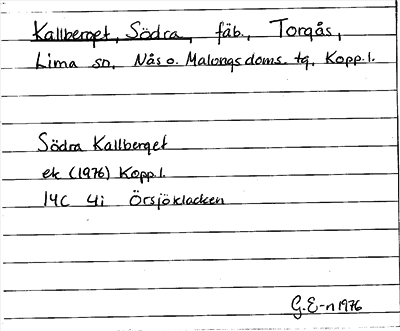 Kallberget, Södra, fäb., Torgås,
Lima sn, Nås o. Malungs doms. tg, Kopp. l.
Södra Kallberget
ek (1976) Kopp. l.
14C 4i Örsjöklacken
G.E-n 1976